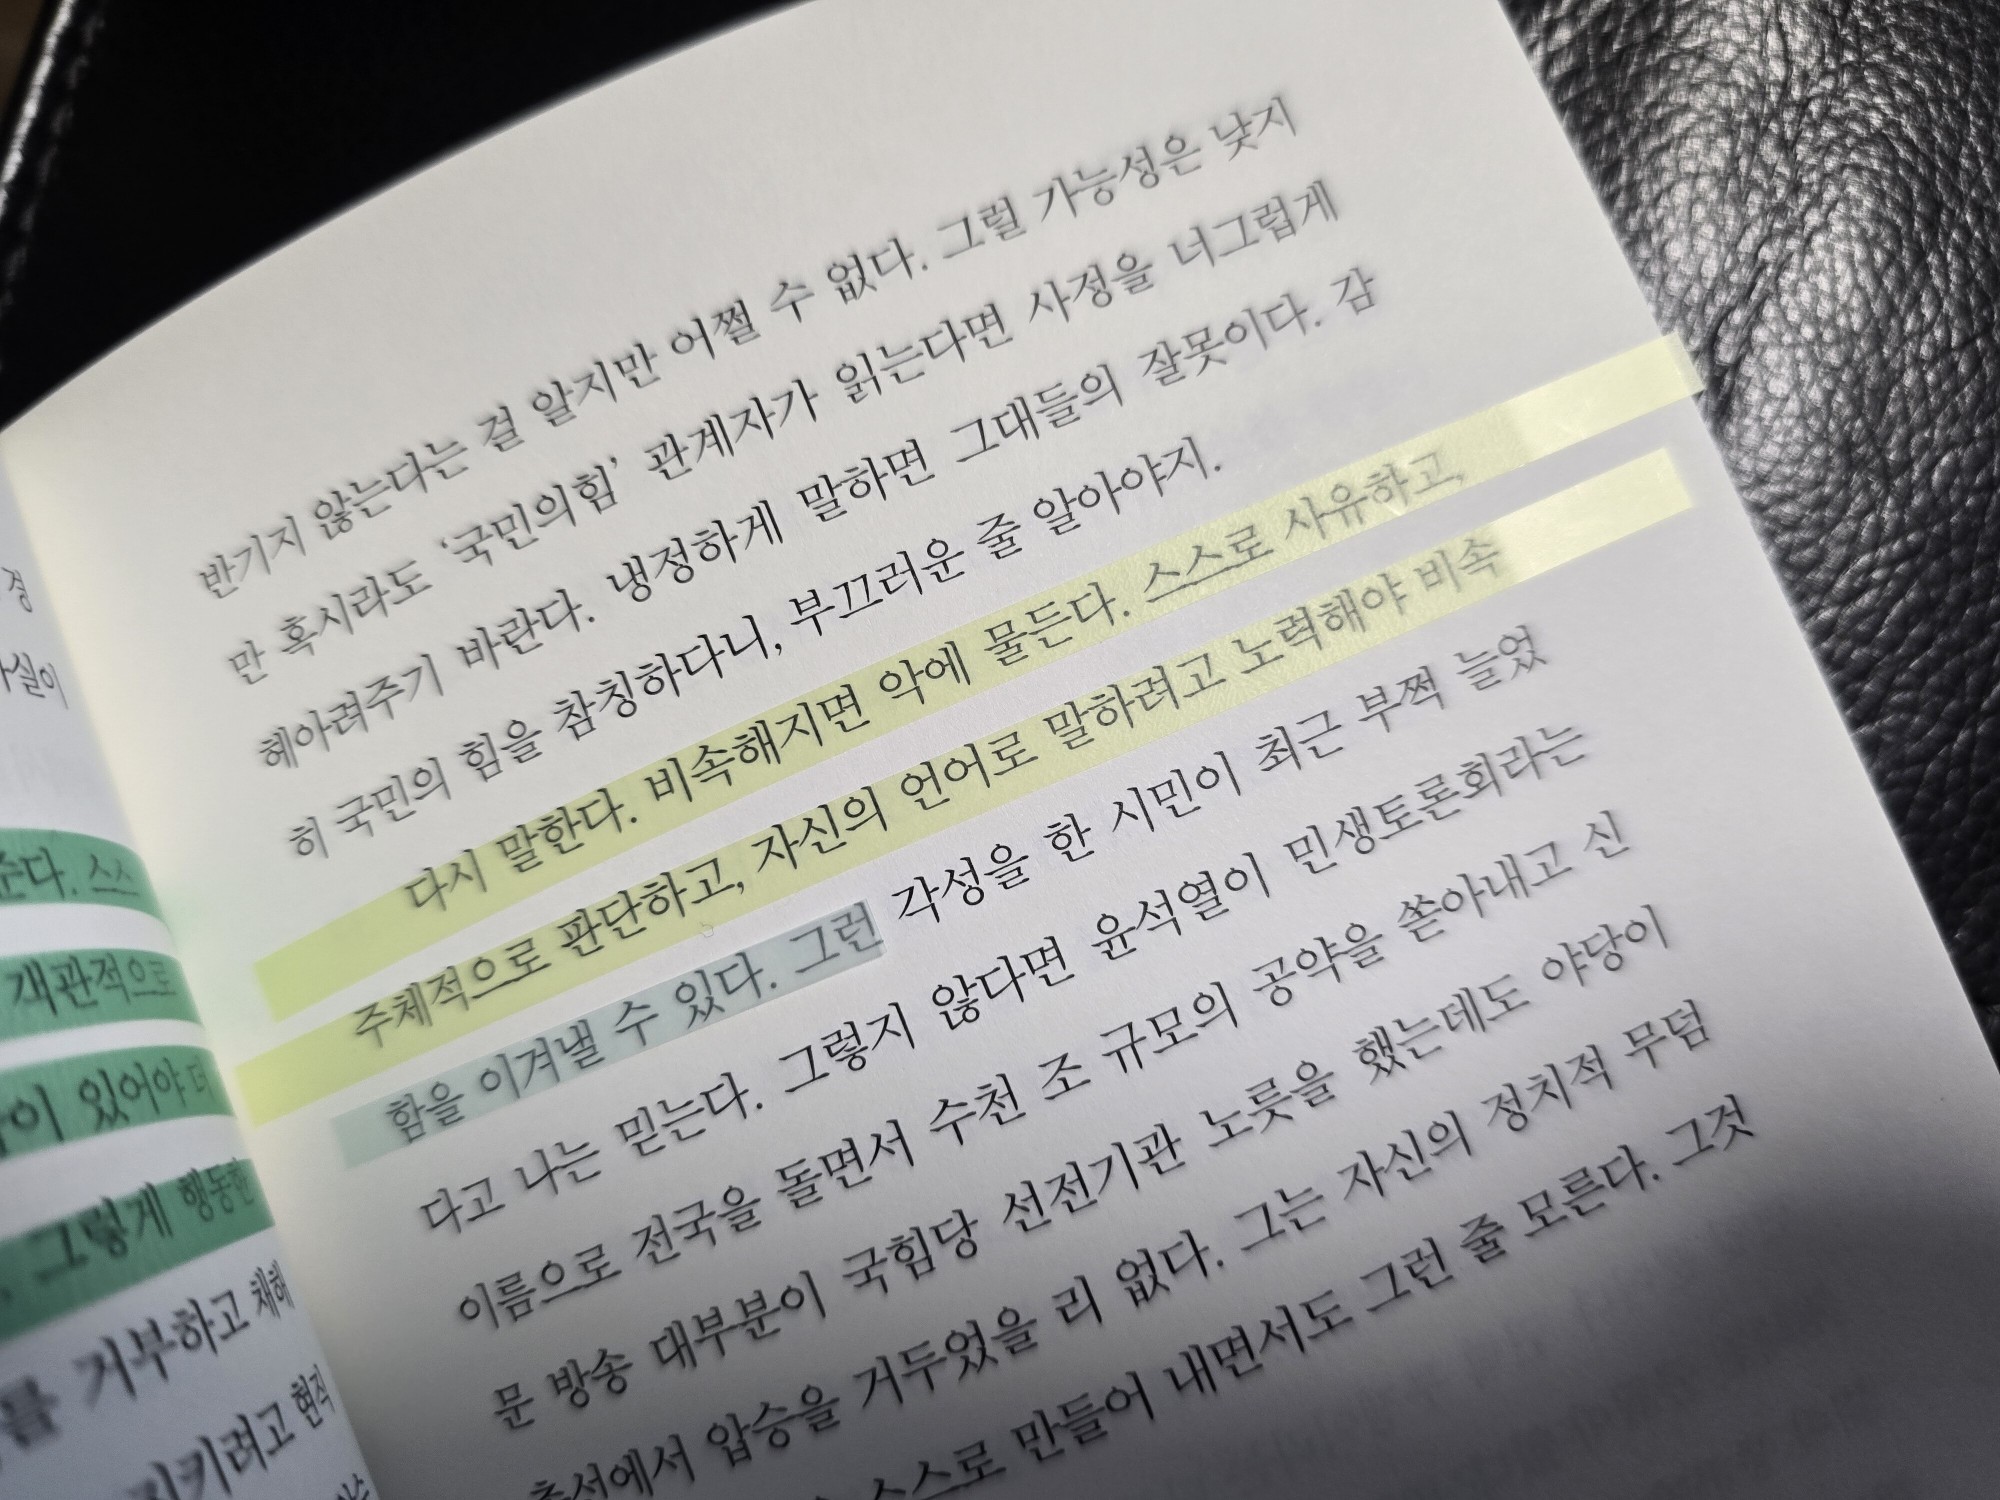 경
사실이
준다. 스스
객관적으로
이 있어야 더
그렇게 행동한
를 거부하고 채해
지키려고 현직
반기지 않는다는 걸 알지만 어쩔 수 없다. 그럴 가능성은 낮지
만 혹시라도 ‘국민의힘’ 관계자가 읽는다면 사정을 너그럽게
헤아려주기 바란다. 냉정하게 말하면 그대들의 잘못이다. 감
히 국민의 힘을 참칭하다니, 부끄러운 줄 알아야지.
다시 말한다. 비속해지면 악에 물든다. 스스로 사유하고,
주체적으로 판단하고, 자신의 언어로 말하려고 노력해야 비속
함을 이겨낼 수 있다. 그런 각성을 한 시민이 최근 부쩍 늘었
다고 나는 믿는다. 그렇지 않다면 윤석열이 민생토론회라는
이름으로 전국을 돌면서 수천 조 규모의 공약을 쏟아내고 신
문 방송 대부분이 국힘당 선전기관 노릇을 했는데도 야당이
총선에서 압승을 거두었을 리 없다. 그는 자신의 정치적 무덤
스스로 만들어 내면서도 그런 줄 모른다. 그것